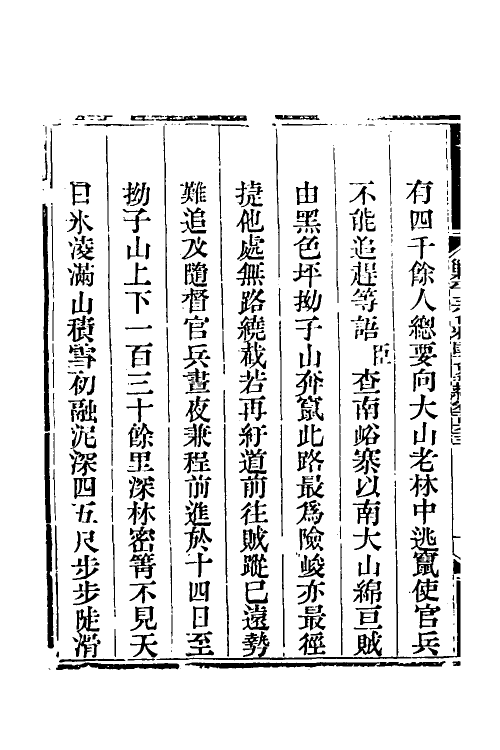 有四千餘人總要向大山老林中逃竄使官兵
不能追趕等語臣查南峪寨以南大山綿亘賊
由黑色坪拗子山奔竄此路最爲險峻亦最徑
捷他處無路繞截若再紆道前往賊蹤已遠勢
難追及隨督官兵晝夜兼程前進於十四日至
拗子山上下一百三十餘里深林密箐不見天
日氷凌滿山積雪初融泥深四五尺步步陡滑